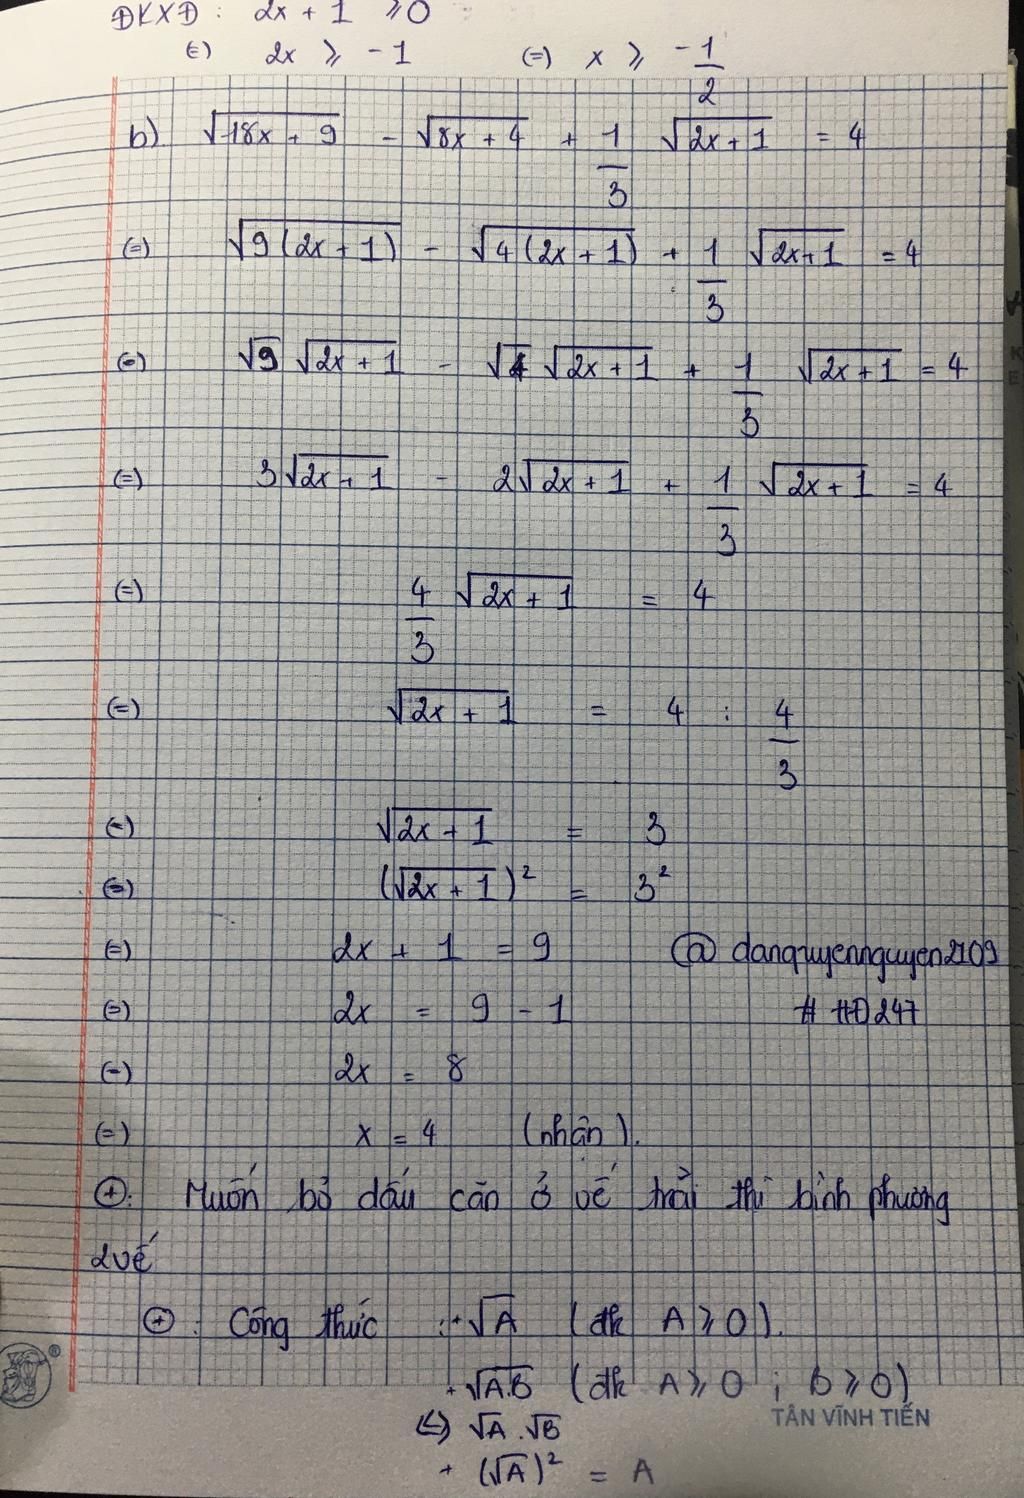 ĐKXĐ: 2x + 1 ⩾ 0
(=) 2x ⩾ -1 (=) x ⩾ -1/2
b) √(18x + 9) - √(8x + 4) + 1/3 √(2x + 1) = 4
(=) √(9(2x + 1)) - √(4(2x + 1)) + 1/3 √(2x + 1) = 4
(=) √9 √(2x + 1) - √4 √(2x + 1) + 1/3 √(2x + 1) = 4
(=) 3√(2x + 1) - 2√(2x + 1) + 1/3 √(2x + 1) = 4
(=) 4/3 √(2x + 1) = 4
(=) √(2x + 1) = 4 : 4/3
(=) √(2x + 1) = 3
(=) (√(2x + 1))² = 3²
(=) 2x + 1 = 9 @danquyennguyen2109
(=) 2x = 9 - 1 # HD247
(=) 2x = 8
(=) x = 4 (nhận).
⊕: Muốn bỏ dấu căn ở vế trái thì bình phương
2 vế
⊕: Công thức : + √A (đk A ⩾ 0).
+ √(A.B) (đk A ⩾ 0 ; B ⩾ 0)
TÂN VĨNH TIẾN
(=) √A . √B
+ (√A)² = A